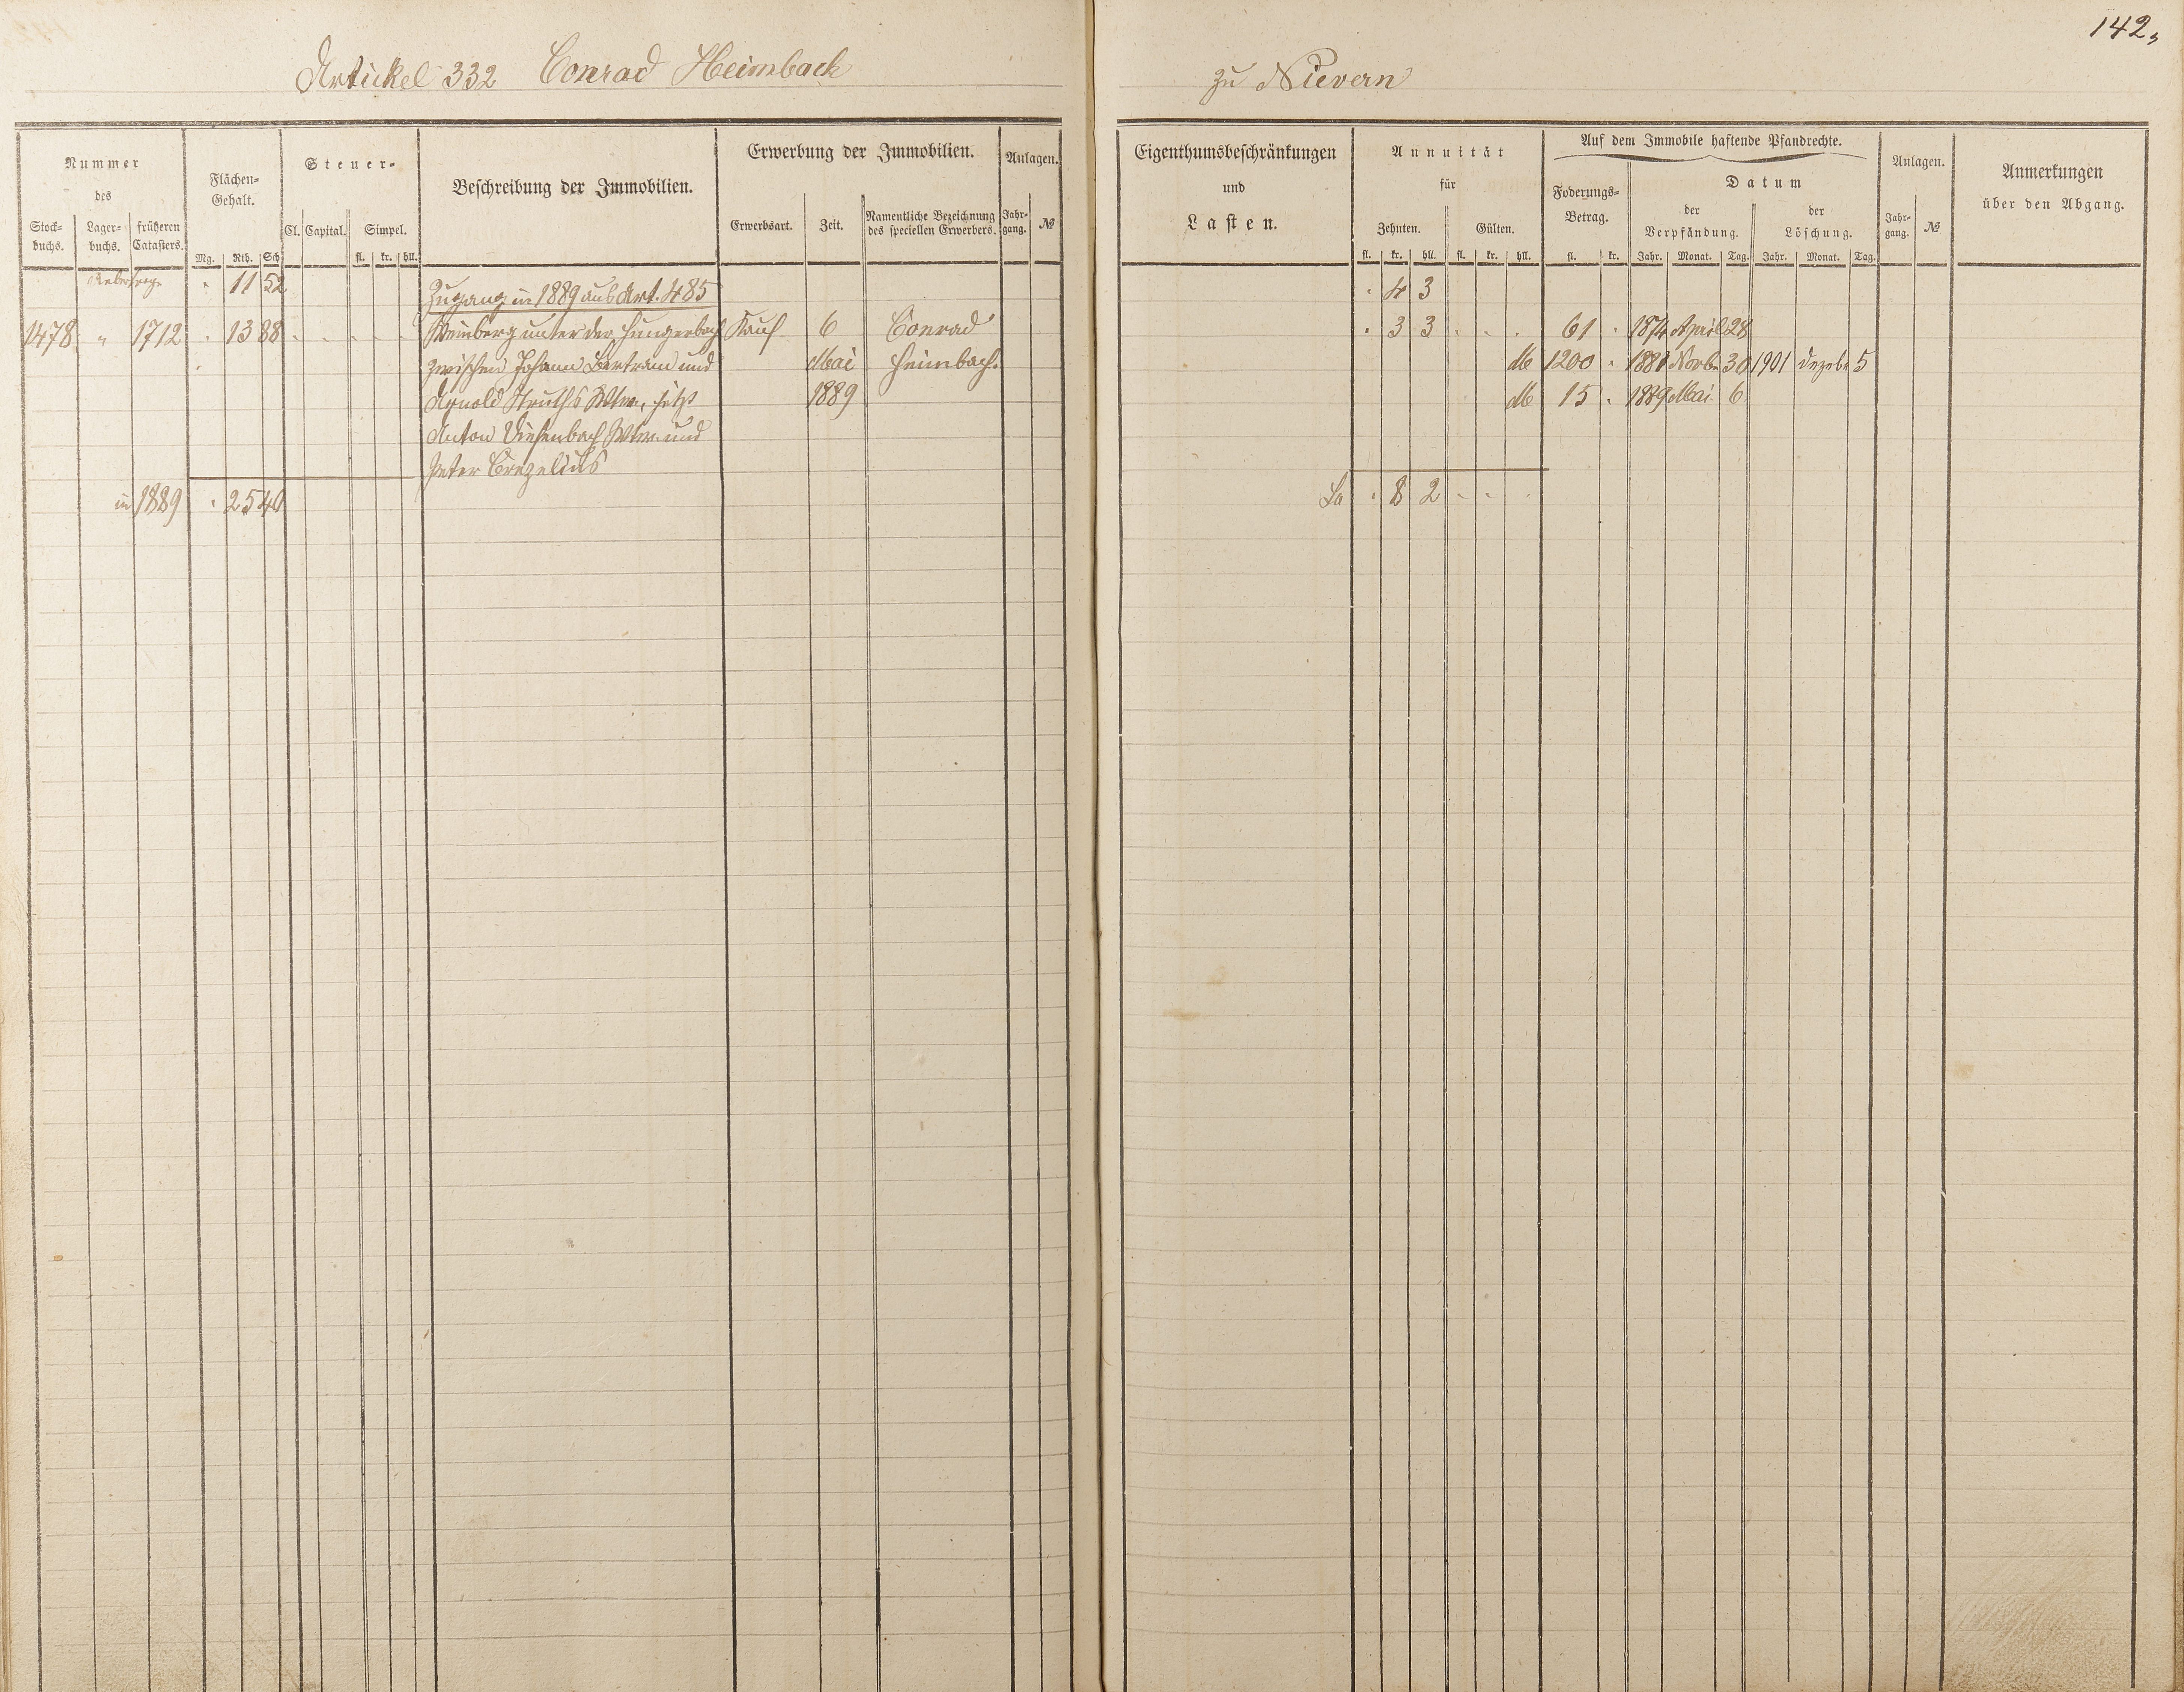 142,
Artickel 332 Conrad Heimbach zu Nievern
Nummer
des
Stock-
buchs.
Lager-
buchs.
früheren
Catasters.
Flächen-
Gehalt.
Mg. Rth. Sch
Steuer-
Cl. Capital. Simpel.
fl. kr. hll.
Beschreibung der Immobilien.
Erwerbung der Immobilien.
Erwerbsart. Zeit.
Namentliche Bezeichnung
des speciellen Erwerbers.
Anlagen.
Jahr-
gang. №
Eigenthumsbeschränkungen
und
Lasten.
Annuität
für
Zehnten. Gülten.
fl. kr. hll. fl. kr. hll.
Auf dem Immobile haftende Pfandrechte.
Foderungs-
Betrag.
fl. kr.
Datum
der
Verpfändung.
Jahr. Monat. Tag.
der
Löschung.
Jahr. Monat. Tag.
Anlagen.
Jahr-
gang. №
Anmerkungen
über den Abgang.
" 11 52 Zugang in 1889 aus Art. 485 " 4 3
1478 " 1712 " 13 88 Weinberg unter der Hungerbach Kauf 6 Conrad " 3 3 61 " 1874 April 28
zwischen Johann Bertram und Mai Heimbach. M 1200 " 1881 Novbr 30 1901 Dezebr 5
Arnold Struths Wtw. jetzt 1889 M 15 " 1889 Mai 6
Anton Wtw. und
Peter
in 1889 " 25 40 Sa " 8 2